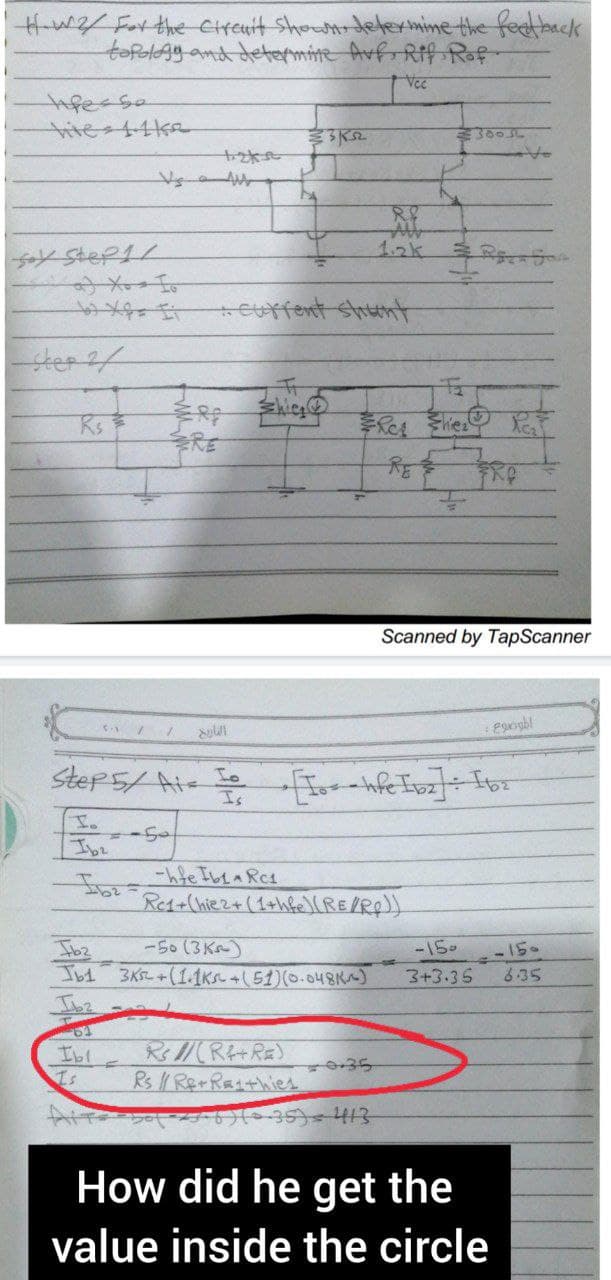 H.W2/ For the circuit shown, determine the feedback
topology and determine Avf, Rif, Rof.
Vcc
hfe = 50
hie = 1.1kΩ
3kΩ
300Ω
1.2kΩ
Vo
Vs
Rf
1.2k
Step 1/
a) Xo = Io
b) Xf = Ii ∴ current shunt
step 2/
T1
T2
Rs
Rf
RE
hie1
Rc1
hie2
Rc2
RE
Rf
Scanned by TapScanner
Step 5/ Ai = Io/Is , [Io = -hfe Ib2] ÷ Ib2
Io/Ib2 = -50
Ib2 = -hfe Ib1 * Rc1 / Rc1+(hie2+(1+hfe)(RE//Rf))
Ib2/Ib1 = -50(3KΩ) / 3KΩ+(1.1KΩ+(51)(0.048KΩ) = -150 / 3+3.35 = -150 / 6.35
Ib2/Ib1
Ib1/Is = Rs//(Rf+RE) / Rs//Rf+RE1+hie1 = 0.35
(0.35) = 413
How did he get the
value inside the circle